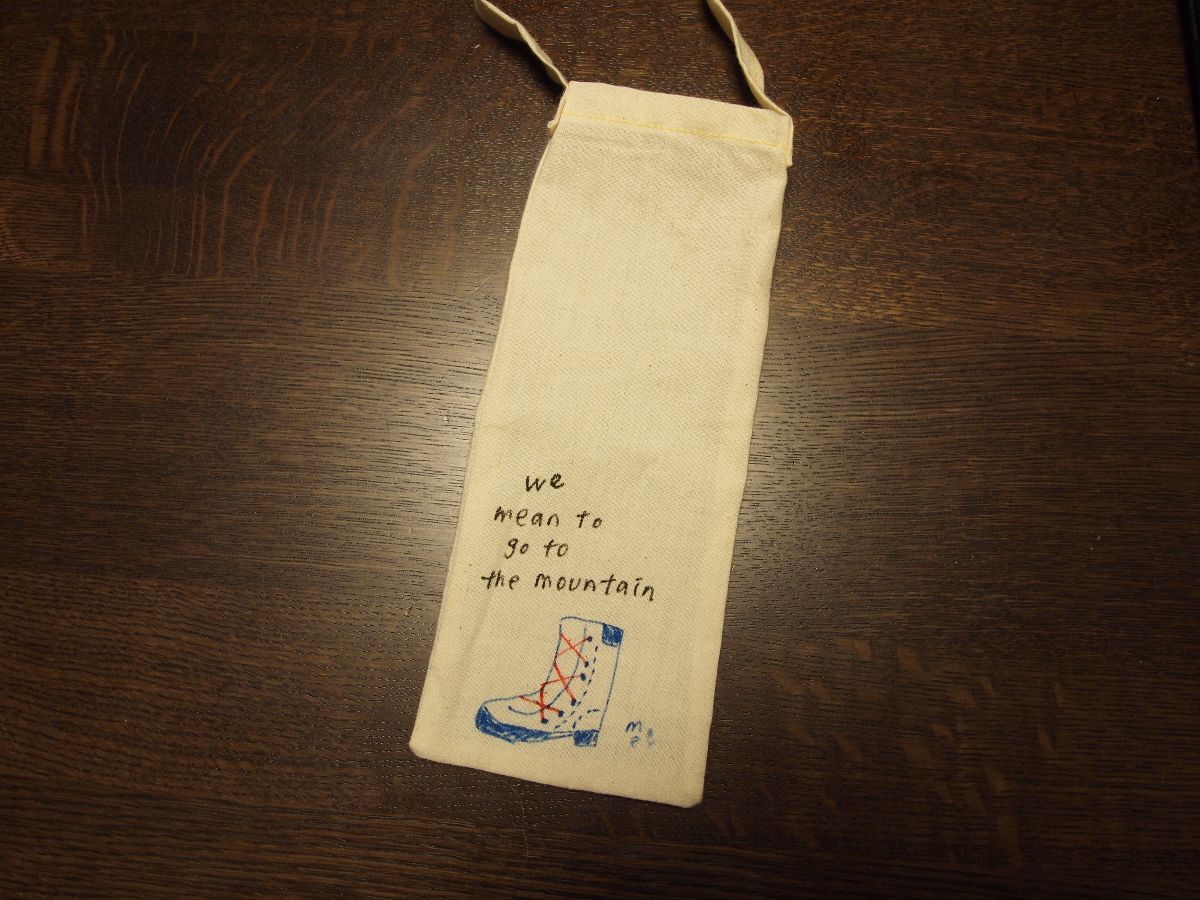 we
mean to
go to
the mountain